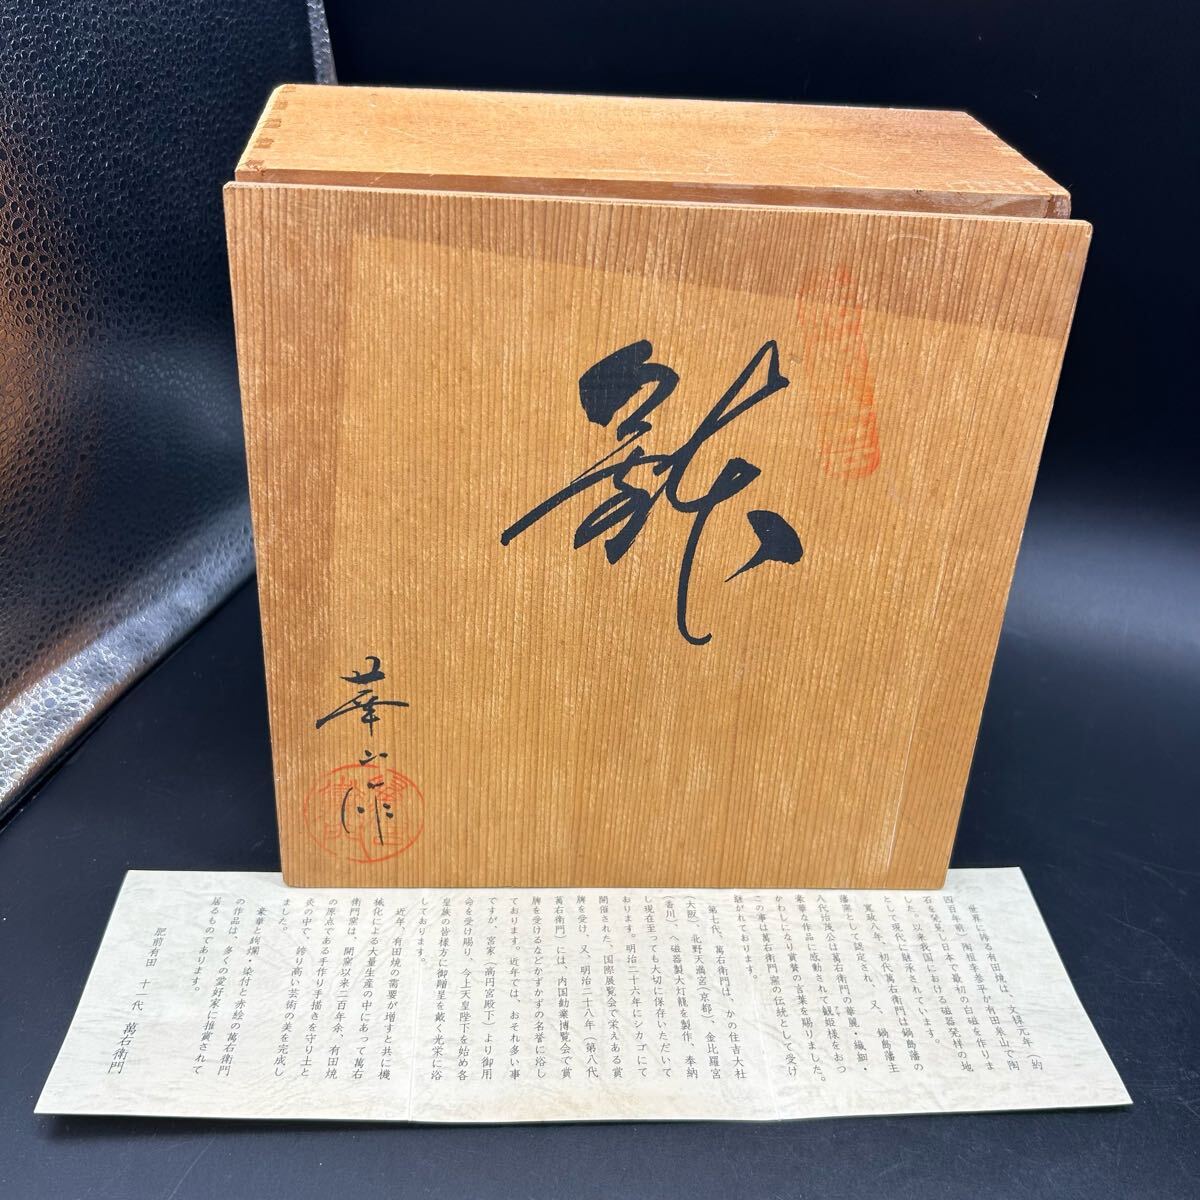 龍
華山作
世界に誇る有田焼は、文禄元年（約
四百年前）陶祖李参平が有田泉山で陶
石を発見し日本で最初の白磁を作りま
した。以来我国における磁器発祥の地
として現代に継承されています。
寛政八年、初代萬右衛門は鍋島藩の
藩窯として認定され、又、鍋島藩主
八代治茂公は萬右衛門の華麗・繊細・
豪華な作品に感動されて観姫様をおつ
かわしになり賞賛の言葉を賜りました。
この事は萬右衛門窯の伝統として受け
継がれております。
第七代、萬右衛門は、かの住吉大社
（大阪）、北野天満宮（京都）、金比羅宮
（香川）、へ磁器製大灯籠を製作、奉納
し現在至っても大切に保存いただいて
おります。明治二十六年にシカゴにて
開催された、国際展覧会で栄えある賞
牌を受け、又、明治二十八年（第八代
萬右衛門）には、内国勧業博覧会で賞
牌を受けるなどかずかずの名誉に浴し
ております。近年では、おそれ多い事
ですが、宮家（高円宮殿下）より御用
命を受け賜り、今上天皇陛下を始め各
皇族の皆様方に御贈呈を戴く光栄に浴
しております。
近年、有田焼の需要が増すと共に機
械化による大量生産の中にあって萬右
衛門窯は、開窯以来二百年余、有田焼
の原点である手作り手描きを守り士と
炎の中で、誇り高い芸術の美を完成し
ました。
豪華と絢爛・染付と赤絵の萬右衛門
の作品は、多くの愛好家に推賞されて
居るものであります。
肥前有田 十一代 萬右衛門